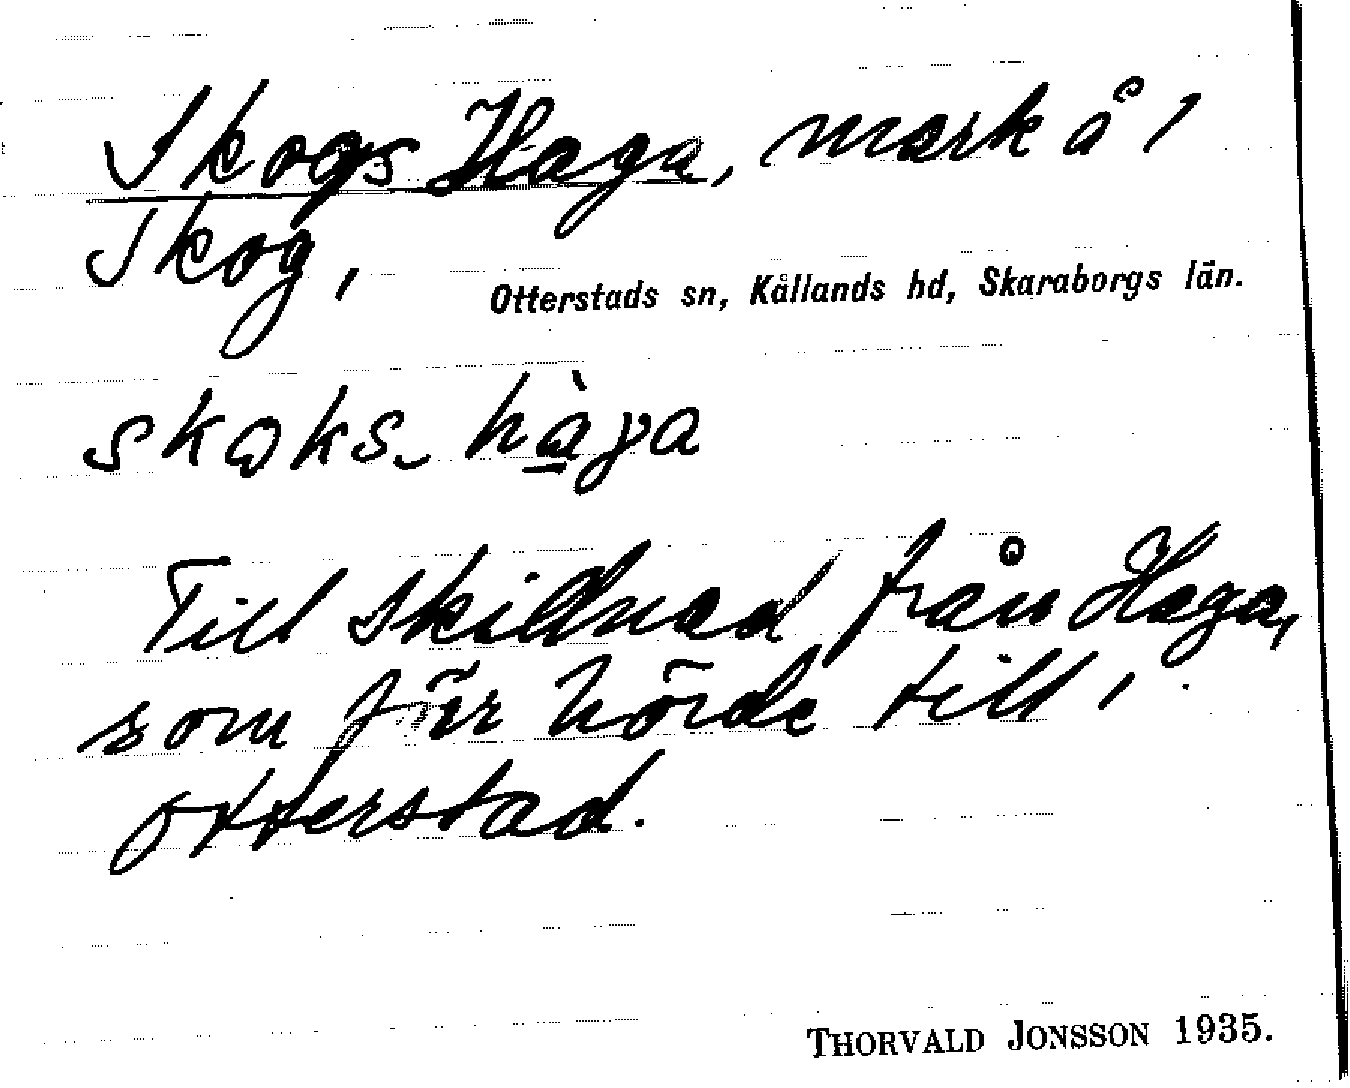 Skogs Haga, mark å 1
Skog,
Otterstads sn, Kållands hd, Skaraborgs län.
skɷks- hàγa
Till skillnad från Haga,
som för hörde till,
Otterstad.
THORVALD JONSSON 1935.